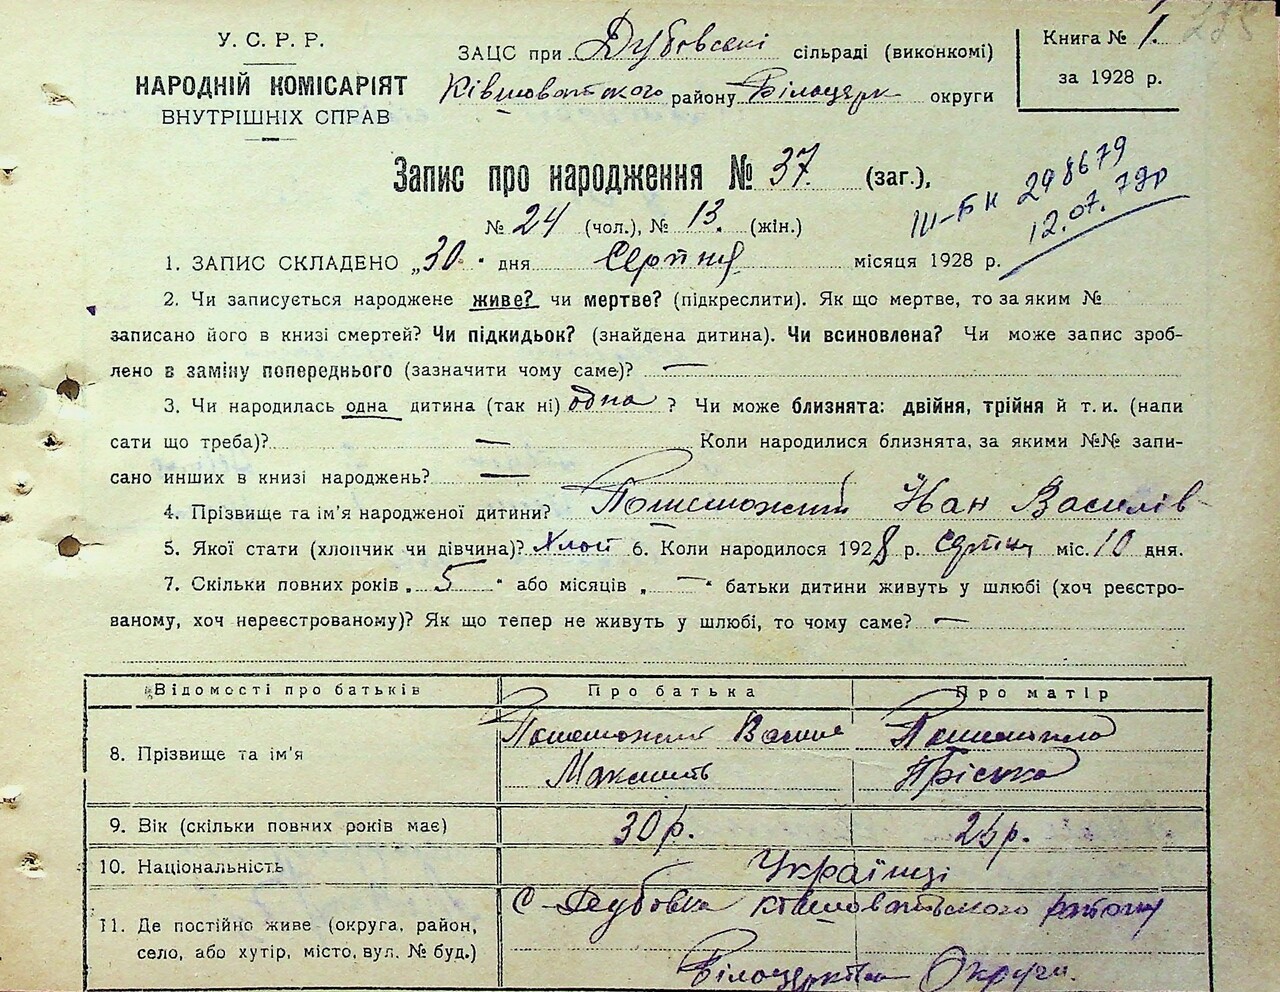 У. С. Р. Р.
НАРОДНІЙ КОМІСАРІЯТ
ВНУТРІШНІХ СПРАВ
ЗАЦС при Дубовській сільраді (виконкомі)
Ківшоватського району Білоцерк округи
Книга № 1.
за 1928 р.
Запис про народження № 37. (заг.),
№ 24 (чол.), № 13. (жін.)
III-БН 298679
12.07.79р
1. ЗАПИС СКЛАДЕНО „30 " дня Серпня місяця 1928 р.
2. Чи записується народжене живе? чи мертве? (підкреслити). Як що мертве, то за яким №
записано його в книзі смертей? Чи підкидьок? (знайдена дитина). Чи всиновлена? Чи може запис зроб-
лено в заміну попереднього (зазначити чому саме)? —
3. Чи народилась одна дитина (так ні) одна ? Чи може близнята: двійня, трійня й т. и. (напи
сати що треба)? — Коли народилися близнята, за якими №№ запи-
сано инших в книзі народжень? —
4. Прізвище та ім'я народженої дитини? Іван Василів
5. Якої стати (хлопчик чи дівчина)? Хлоп 6. Коли народилося 1928 р. серпня міс. 10 дня.
7. Скільки повних років „ 5 " або місяців „ — " батьки дитини живуть у шлюбі (хоч реєстро-
ваному, хоч нереєстрованому)? Як що тепер не живуть у шлюбі, то чому саме? —
Відомості про батьків Про батька Про матір
8. Прізвище та ім'я
Пріська
9. Вік (скільки повних років має) 30 р. 25 р.
10. Національність Українці
11. Де постійно живе (округа, район,
село, або хутір, місто, вул. № буд.)
С Дубовка ківшоватського району
Округи.